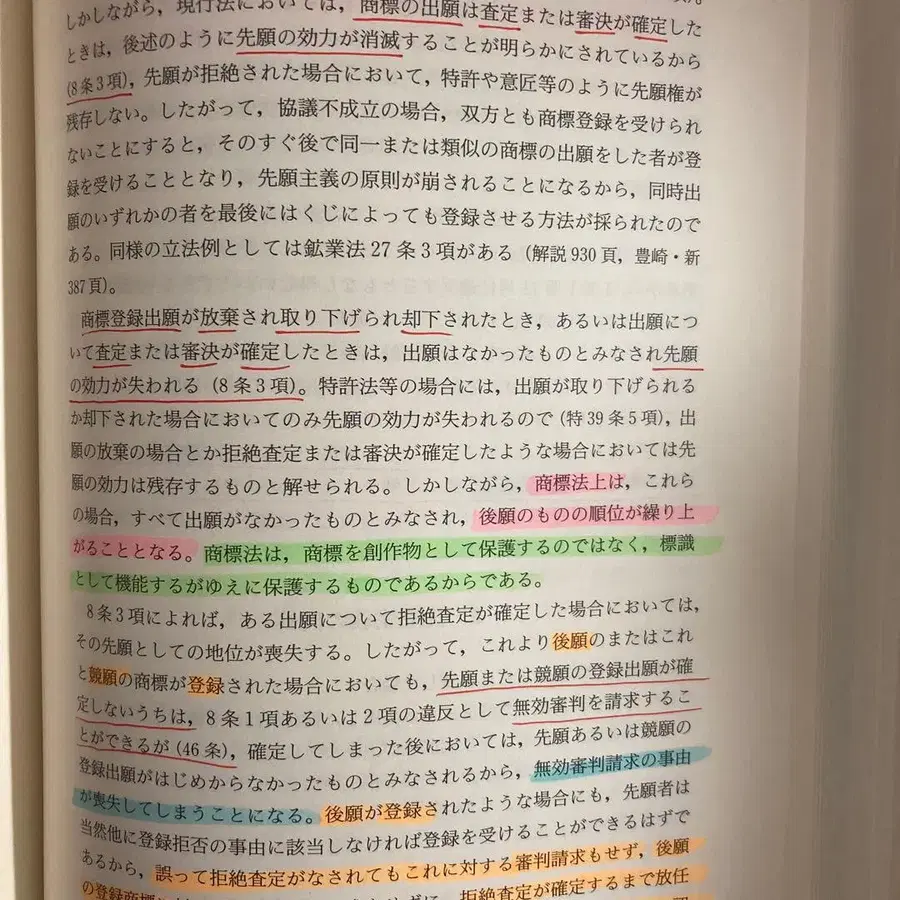 しかしながら，現行法においては，商標の出願は査定または審決が確定した
ときは，後述のように先願の効力が消滅することが明らかにされているから
(8条3項)，先願が拒絶された場合において，特許や意匠等のように先願権が
残存しない。したがって，協議不成立の場合，双方とも商標登録を受けられ
ないことにすると，そのすぐ後で同一または類似の商標の出願をした者が登
録を受けることとなり，先願主義の原則が崩されることになるから，同時出
願のいずれかの者を最後にはくじによっても登録させる方法が採られたので
ある。同様の立法例としては鉱業法27条3項がある（解説930頁，豊崎・新
387頁）。
商標登録出願が放棄され取り下げられ却下されたとき，あるいは出願につ
いて査定または審決が確定したときは，出願はなかったものとみなされ先願
の効力が失われる（8条3項）。特許法等の場合には，出願が取り下げられる
か却下された場合においてのみ先願の効力が失われるので（特39条5項），出
願の放棄の場合とか拒絶査定または審決が確定したような場合においては先
願の効力は残存するものと解せられる。しかしながら，商標法上は，これら
の場合，すべて出願がなかったものとみなされ，後願のものの順位が繰り上
がることとなる。商標法は，商標を創作物として保護するのではなく，標識
として機能するがゆえに保護するものであるからである。
8条3項によれば，ある出願について拒絶査定が確定した場合においては，
その先願としての地位が喪失する。したがって，これより後願のまたはこれ
と競願の商標が登録された場合においても，先願または競願の登録出願が確
定しないうちは，8条1項あるいは2項の違反として無効審判を請求するこ
とができるが（46条），確定してしまった後においては，先願あるいは競願の
登録出願がはじめからなかったものとみなされるから，無効審判請求の事由
が喪失してしまうことになる。後願が登録されたような場合にも，先願者は
当然他に登録拒否の事由に該当しなければ登録を受けることができるはずで
あるから，誤って拒絶査定がなされてもこれに対する審判請求もせず，後願
の登録商標に
拒絶査定が確定するまで放任